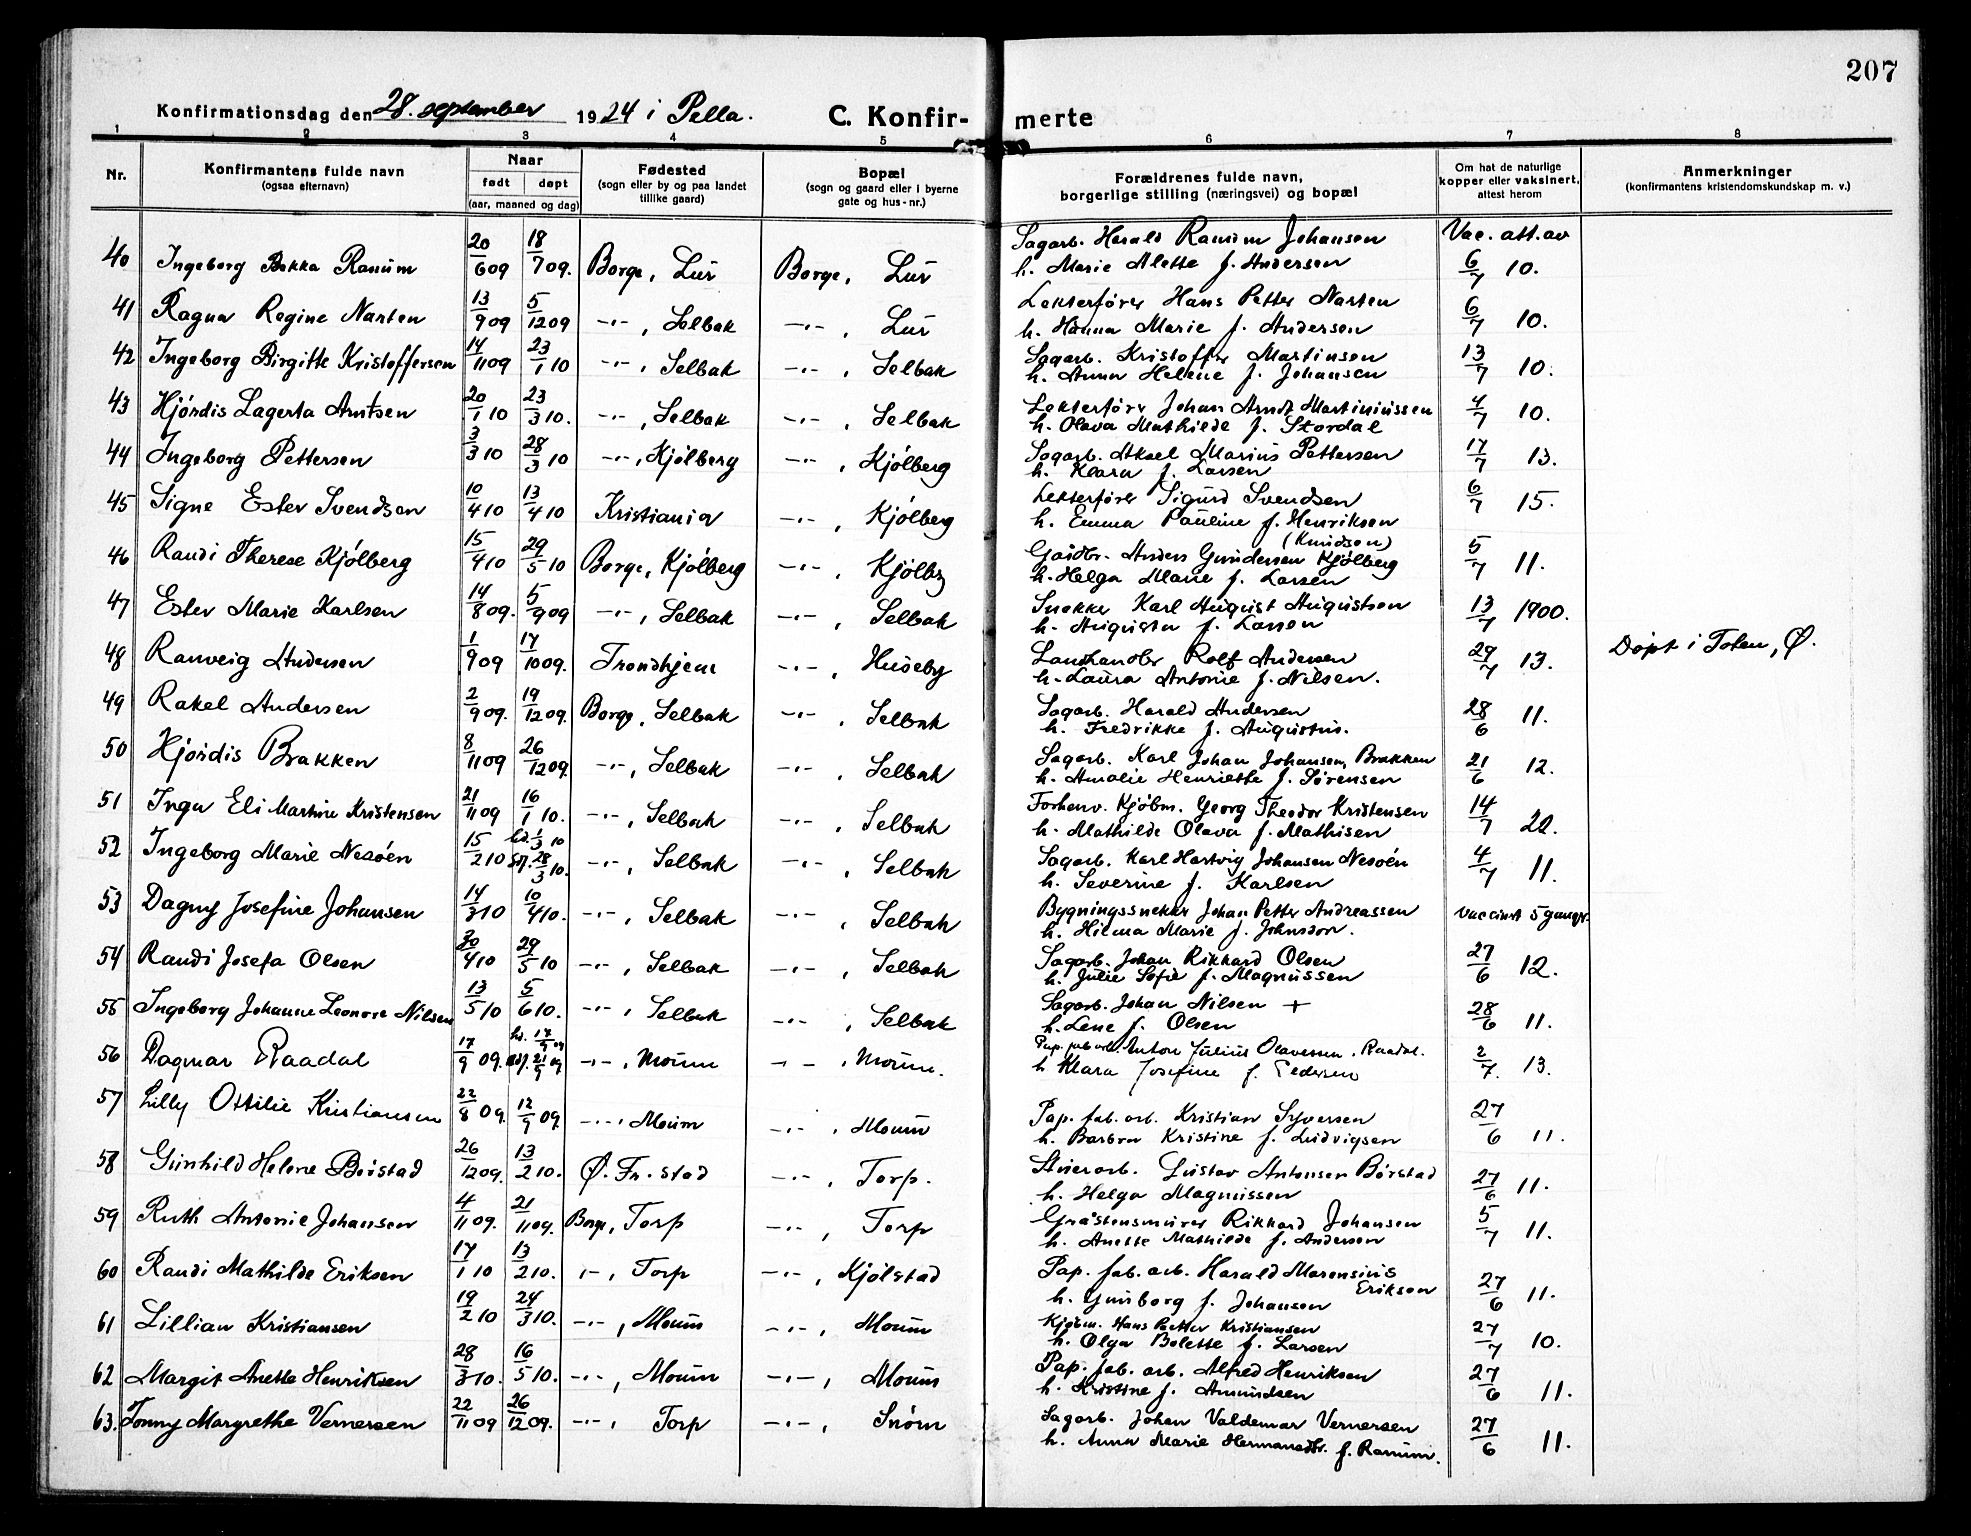 207
Konfirmationsdag den 28. september 1924 i Pella. C. Konfir- merte
1 2 3 4 5 6 7 8
Nr. Konfirmantens fulde navn (ogsaa efternavn) Naar født døpt (aar, maaned og dag) Fødested (sogn eller by og paa landet tillike gaard) Bopæl (sogn og gaard eller i byerne gate og hus-nr.) Forældrenes fulde navn, borgerlige stilling (næringsvei) og bopæl Om hat de naturlige kopper eller vaksinert, attest herom Anmerkninger (konfirmantens kristendomskundskap m. v.)
40 Ingeborg Bokka Ranum 20/6 09 18/7 09. Borge, Lur Borge, Lur Sagarb. Harald Ranum Johansen Vac. att. av
h. Marie Alette f. Andersen 6/7 10.
41 Ragna Regine Narten 13/9 09 5/12 09 -"-, Selbak -"-, Lur Lekterfører Hans Petter Narten 6/7 10.
h. Hanna Marie f. Andersen
42 Ingeborg Birgitte Kristoffersen 14/11 09 23/1 10 -"-, Selbak -"-, Selbak Sagarb. Kristoffer Martinsen 13/7 10.
h. Anna Helene f. Johansen
43 Hjördis Lagerta Arntsen 20/1 10 23/3 10. -"-, Selbak -"-, Selbak Lekterfører Johan Arndt Martiniussen 4/7 10.
h. Olava Mathilde f. Stordal
44 Ingeborg Pettersen 3/3 10 28/3 10 -"-, Kjölberg -"-, Kjölberg Sagarb. Aksel Marius Pettersen 17/7 13.
h. Klara f. Larsen
45 Signe Ester Svendsen 10/4 10 13/4 10 Kristiania -"-, Kjölberg Lekterfører Sigurd Svendsen 6/7 15.
h. Emma Pauline f. Henriksen
(Knudsen)
46 Randi Therese Kjölberg 15/4 10 29/5 10 Borge, Kjölberg -"-, Kjölbg Gaardbr. Anders Gundersen Kjölberg 5/7 11.
h. Helga Marie f. Larsen
47 Ester Marie Karlsen 14/8 09. 5/9 09 -"-, Selbak -"-, Selbak Snekker Karl August Augustsen 13/7 1900.
h. Augusta f. Larsen
48 Ranveig Andersen 1/9 09 17/10 09. Trondhjem -"-, Huseby Landhandler Rolf Andersen 29/7 13. Döpt i Toten, Ø.
h. Laura Antonie f. Nilsen.
49 Rakel Andersen 2/9 09. 19/12 09. Borge, Selbak -"-, Selbak Sagarb. Harald Andersen 28/6 11.
h. Fredrikke f. Augustin.
50 Hjördis Brakken 8/11 09 26/12 09. -"-, Selbak -"-, Selbak Sagarb. Karl Johan Johansen Brakken 21/6 12.
h. Amalie Henriette f. Sørensen
51 Inga Eli Martine Kristensen 21/11 09 16/1 10. -"-, Selbak -"-, Selbak Forhenv. Kjøbm. Georg Theodor Kristensen 14/7 22.
h. Mathilde Olava f. Mathisen
52 Ingeborg Marie Nesöen 15/2 10 hd. 1/3 10 28/3 10. -"-, Selbak -"-, Selbak Sagarb. Karl Hartvig Johansen Nesöen 4/7 11.
h. Severine f. Karlsen
53 Dagny Josefine Johansen 14/3 10 10/4 10. -"-, Selbak -"-, Selbak Bygningssnekker Johan Petter Andreassen vaccinert 5 ganger.
h. Hilma Marie f. Johnsson.
54 Randi Josefa Olsen 20/4 10 29/5 10 -"-, Selbak -"-, Selbak Sagarb. Johan Rikhard Olsen 27/6 12.
h. Julie Sofie f. Magnussen
55 Ingeborg Johanne Leonore Nilsen 13/5 10 5/6 10. -"-, Selbak -"-, Selbak Sagarb. Johan Nilsen + 28/6 11.
h. Lene f. Olsen
56 Dagmar Raadal 17/9 09. hd. 17/9 09 21/9 09 -"-, Moum -"-, Moum. Pap. fab. arb. Anton Julius Olavessen Raadal. 2/7. 13.
h. Klara Josefine f. Pedersen
57 Lilly Ottilie Kristiansen 22/8 09. 12/9 09. -"-, Moum -"-, Moum Pap. fab. arb. Kristian Syversen 27/6 11.
h. Barbra Kristine f. Ludvigsen
58 Gunhild Helene Börstad 26/12 09. 13/2 10. Ø. Fr.stad -"-, Torp. Stuerarb. Gustav Antonsen Börstad 27/6 11.
h. Helga Magnussen
59 Ruth Antonie Johansen 4/11 09. 21/11 09. Borge, Torp -"-, Torp Gråstensmurer Rikhard Johansen 5/7 11.
h. Anette Mathilde f. Andersen
60 Randi Mathilde Eriksen 17/1 10 13/2 10. -"-, Torp -"-, Kjölstad Pap. fab. arb. Harald Marensius Eriksen 27/6 11.
h. Gunborg f. Johansen
61 Lillian Kristiansen 19/2 10 24/3 10. -"-, Moum -"-, Moum Kjøbm. Hans Petter Kristiansen 27/7 10.
h. Olga Bolette f. Larsen
62 Margit Anette Henriksen 28/3 10. 16/5 10. -"-, Moum -"-, Moum Pap. fab. arb. Alfred Henriksen 27/6 11.
h. Kristine f. Amundsen
63. Tonny Margrethe Vernersen 22/11 09 26/12 09. -"-, Torp -"-, Snörn Sagarb. Johan Valdemar Vernersen 27/6 11.
h. Anna Marie Hermansdtr. f. Ranum.